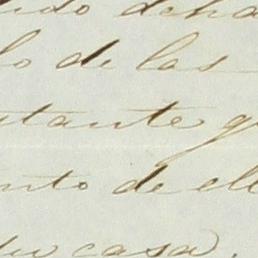 ido deha
lo de las
stante q
ento de ell
su casa.